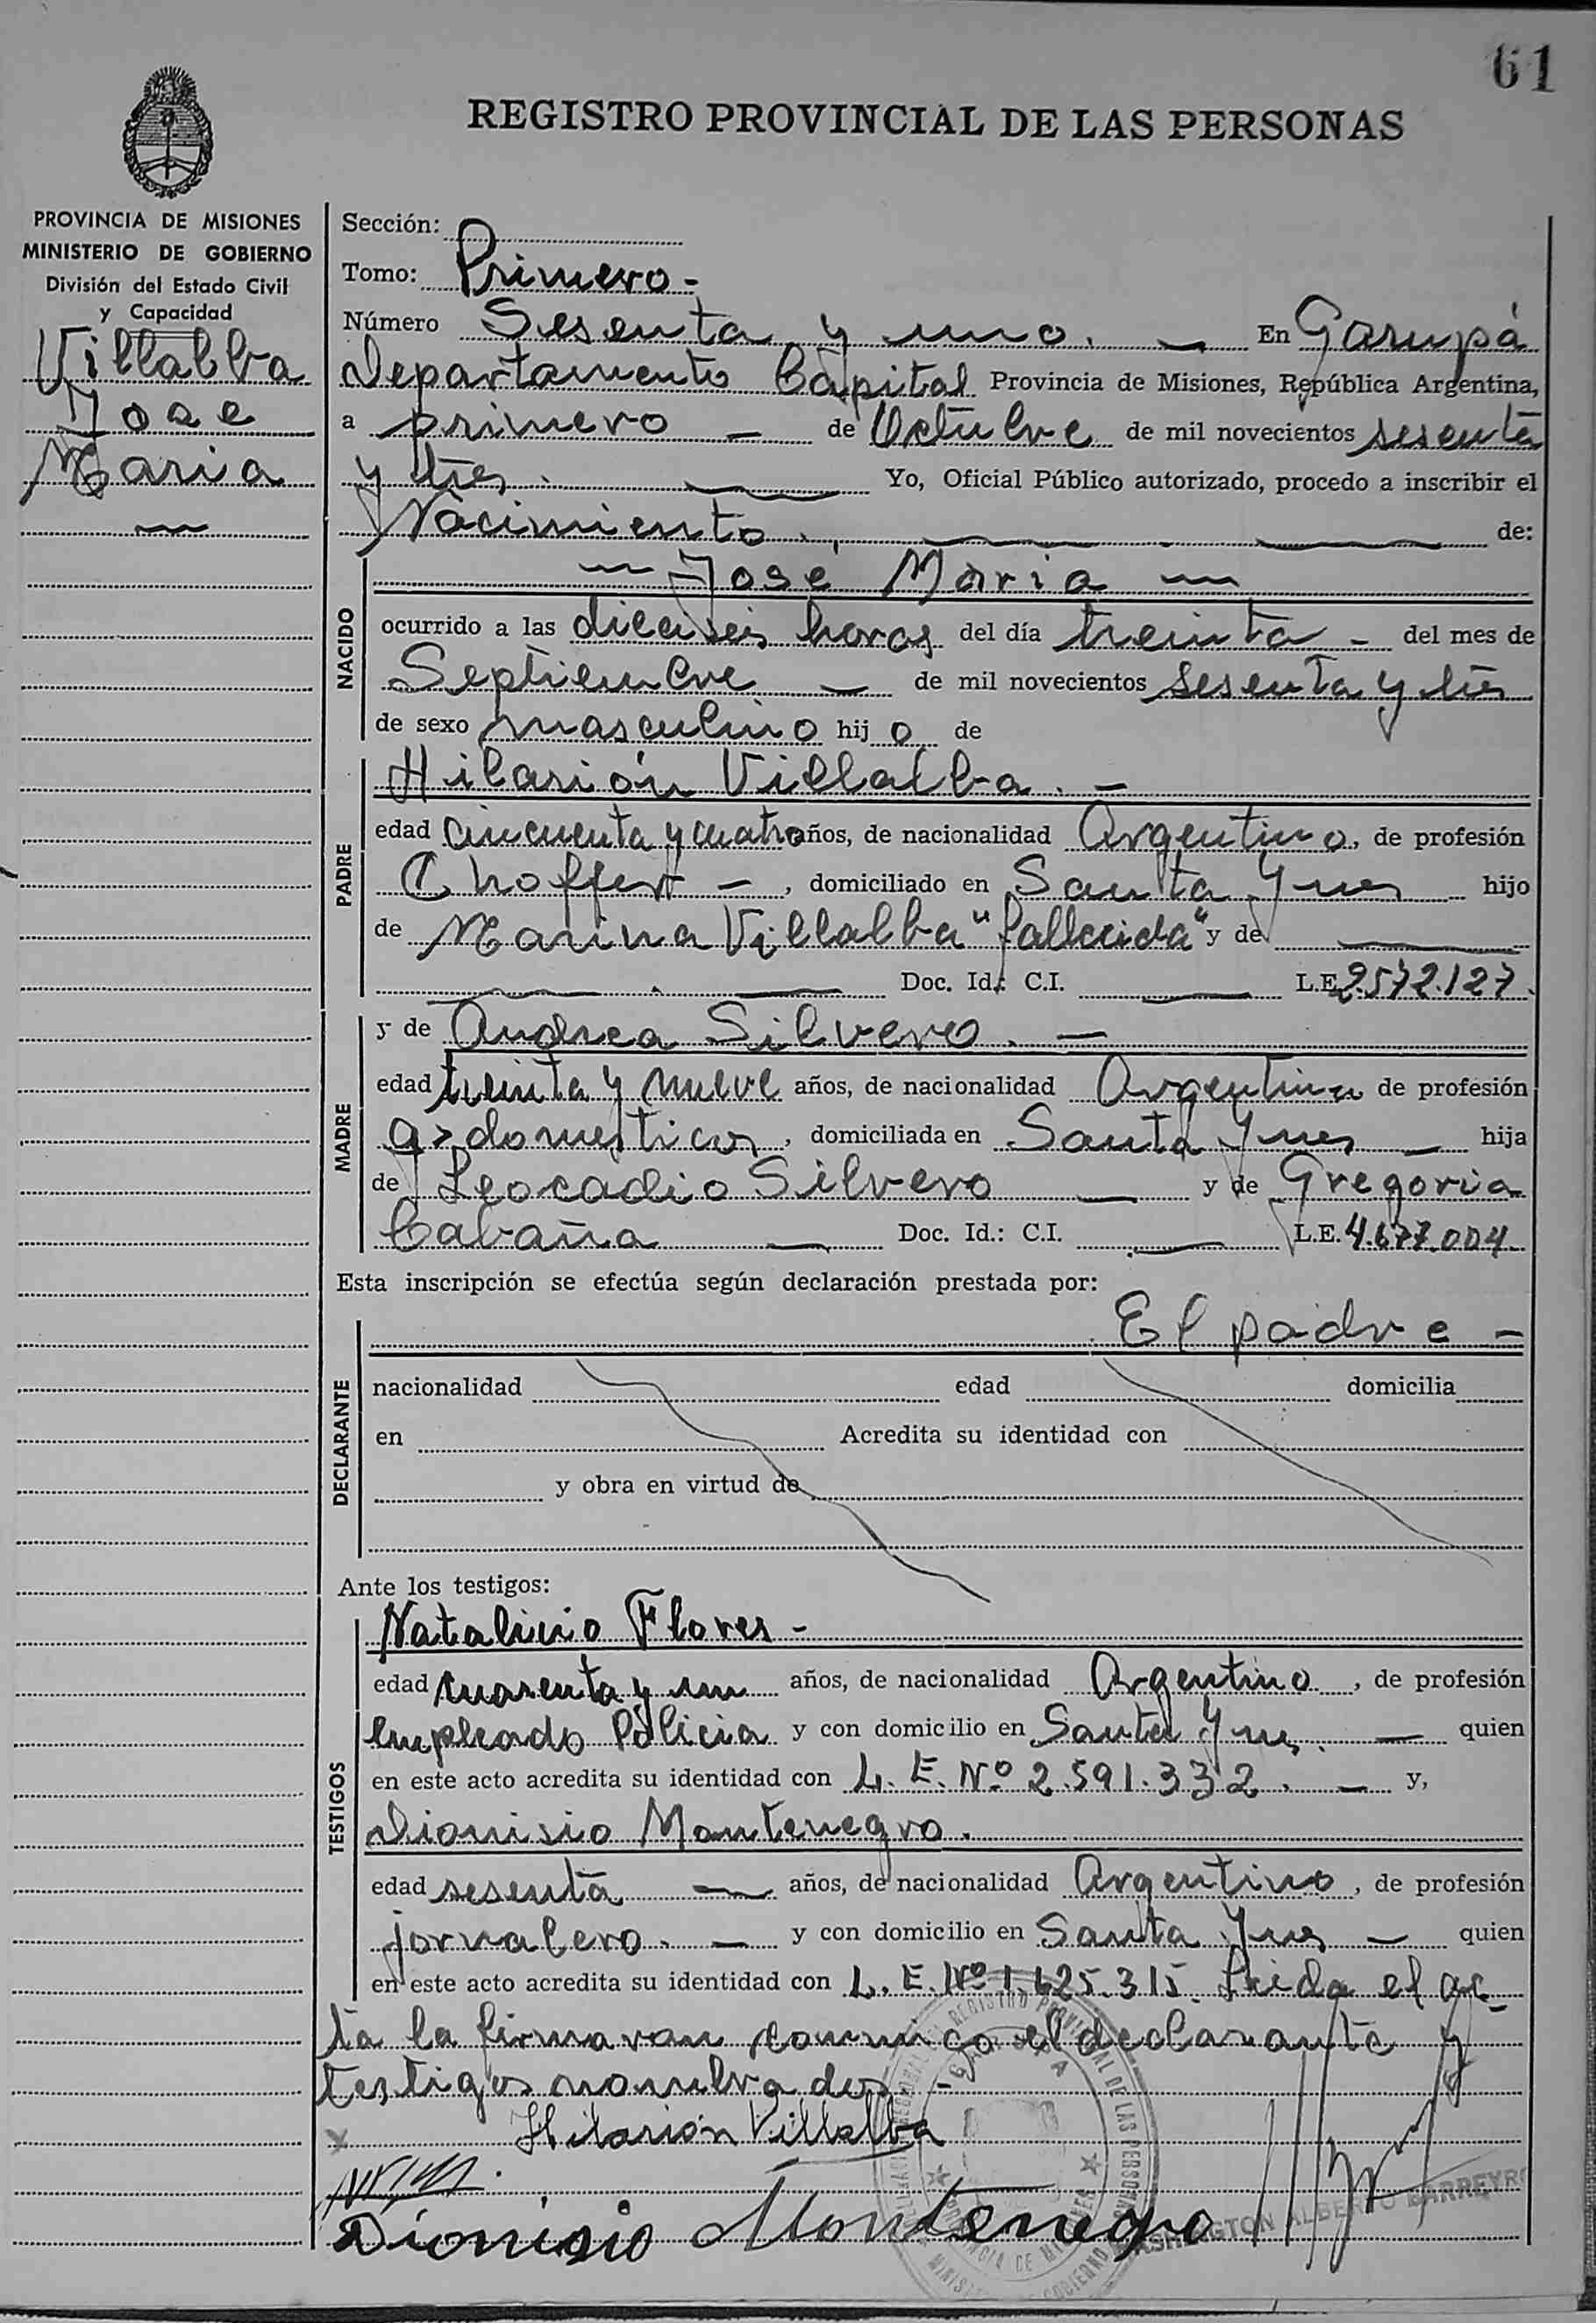 61
REGISTRO PROVINCIAL DE LAS PERSONAS
PROVINCIA DE MISIONES
MINISTERIO DE GOBIERNO
División del Estado Civil
y Capacidad
Villalba
Jose
Maria
Sección:
Tomo: Primero -
Número Sesenta y uno. — En Garupá
Departamento Capital Provincia de Misiones, República Argentina,
a primero — de Octubre de mil novecientos sesenta
y tres. — Yo, Oficial Público autorizado, procedo a inscribir el
Nacimiento. — de:
NACIDO
— José Maria —
ocurrido a las dieciseis horas del día treinta - del mes de
Septiembre — de mil novecientos sesenta y tres
de sexo masculino hijo de
PADRE
Hilarión Villalba. -
edad cincuenta y cuatro años, de nacionalidad Argentino, de profesión
Choffer -, domiciliado en Santa Ynes hijo
de Marina Villalba "fallecida" y de —
— Doc. Id.: C.I. — L.E. 2.572.127.
MADRE
y de Andrea Silvero. —
edad treinta y nueve años, de nacionalidad Argentina de profesión
q> domesticos, domiciliada en Santa Ynes — hija
de Leocadio Silvero — y de Gregoria
Cabaña — Doc. Id.: C.I. — L.E. 4.677.004
Esta inscripción se efectúa según declaración prestada por:
DECLARANTE
El padre -
nacionalidad edad domicilia
en Acredita su identidad con
y obra en virtud de
Ante los testigos:
TESTIGOS
Natalicio Flores -
edad cuarenta y un años, de nacionalidad Argentino, de profesión
empleado Policia y con domicilio en Santa Ynes. — quien
en este acto acredita su identidad con L. E. Nº 2.591.332. — y,
Dionisio Montenegro.
edad sesenta — años, de nacionalidad Argentino, de profesión
jornalero. — y con domicilio en Santa Ynes — quien
en este acto acredita su identidad con L. E. Nº 1.625.315. Leida el ac_
ta la firmaron conmigo el declarante y
testigos nombrados -
Hilarión Villalba
Dionisio Montenegro
WASHINGTON ALBERTO BARREYRO
REGISTRO PROVINCIAL DE LAS PERSONAS
GARUPA